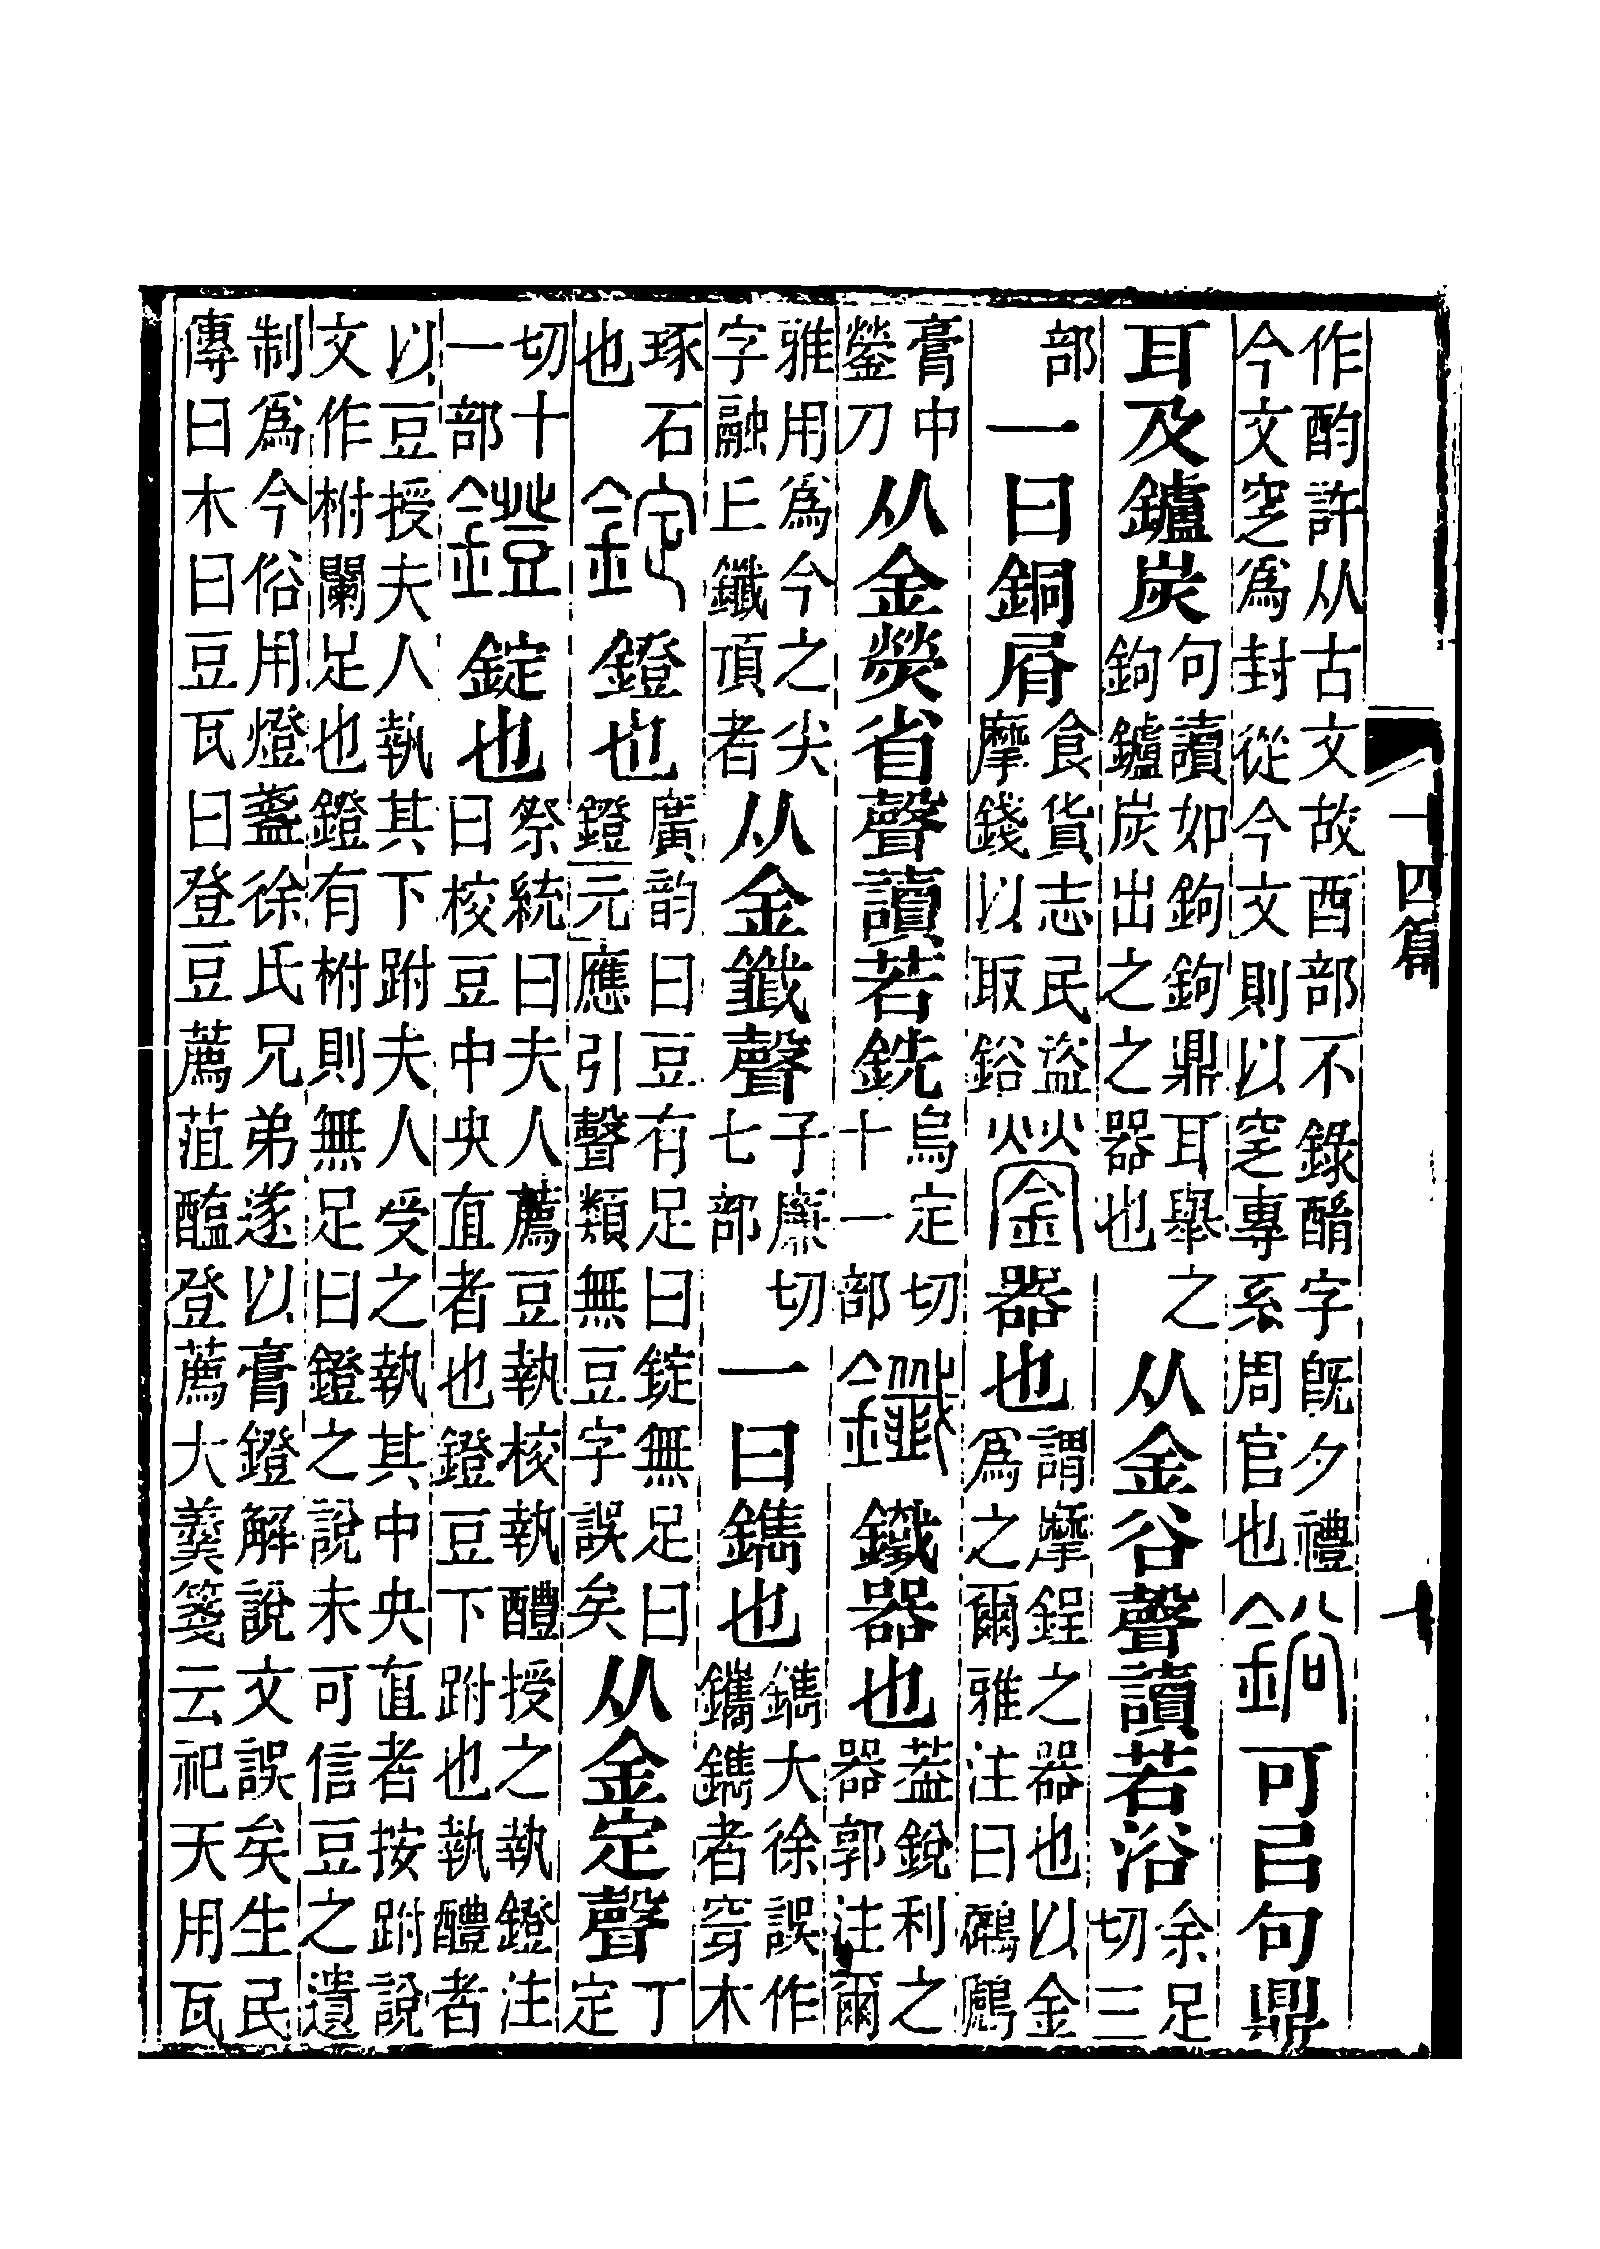 十四篇 十
作酌許从古文故酉部不錄酳字旣夕禮今文窆爲封從今文則以窆專系周官也鋊可㠯句鼎
耳及鑪炭句讀如鉤鉤鼎耳舉之鉤鑪炭出之之器也从金谷聲讀若浴余足切三
部一曰銅屑食貨志民盗摩錢以取鋊鎣器也謂摩鋥之器也以金爲之爾雅注曰鷿鷉
膏中鎣刀从金熒省聲讀若銑烏定切十一部鑯鐵器也葢銳利之器郭注爾
雅用爲今之尖字融丘鑯頂者从金韱聲子廉切七部一曰鐫也鐫大徐誤作鑴鐫者穿木
琢石也錠鐙也廣韵曰豆有足曰錠無足曰鐙元應引聲類無豆字誤矣从金定聲丁定
切十一部鐙錠也祭統曰夫人薦豆執校執醴授之執鐙注曰校豆中央直者也鐙豆下跗也執醴者
以豆授夫人執其下跗夫人受之執其中央直者按跗說文作柎闌足也鐙有柎則無足曰鐙之說未可信豆之遺
制爲今俗用燈盞徐氏兄弟遂以膏鐙解說文誤矣生民傳曰木曰豆瓦曰登豆薦菹醢登薦大羹箋云祀天用瓦